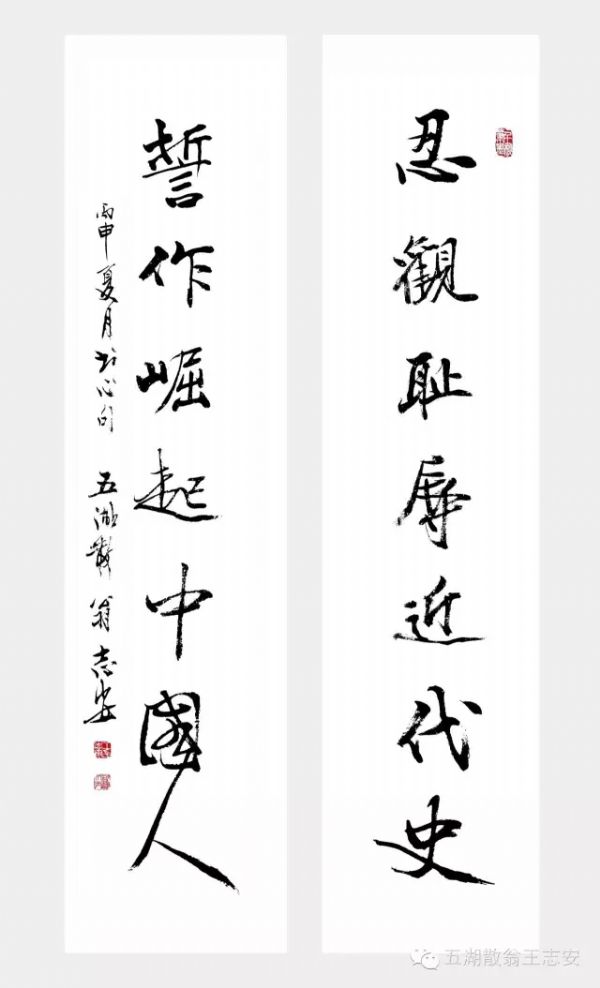 忍觀恥辱近代史
誓作崛起中國人
丙申夏月书心句 五湖散翁志安
五湖散翁王志安